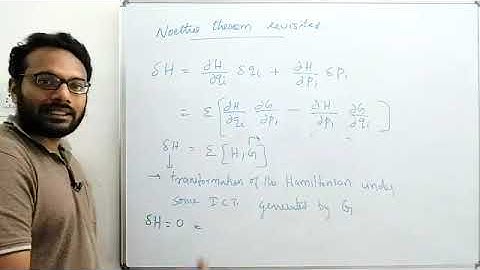 Noethers theorem revisited
δH = ∂H/∂qᵢ δqᵢ + ∂H/∂pᵢ δpᵢ
= Σ [∂H/∂qᵢ ∂G/∂pᵢ − ∂H/∂pᵢ ∂G/∂qᵢ]
δH = Σ [H, G]
→ transformation of the Hamiltonian under
some ICT generated by G
δH = 0 =